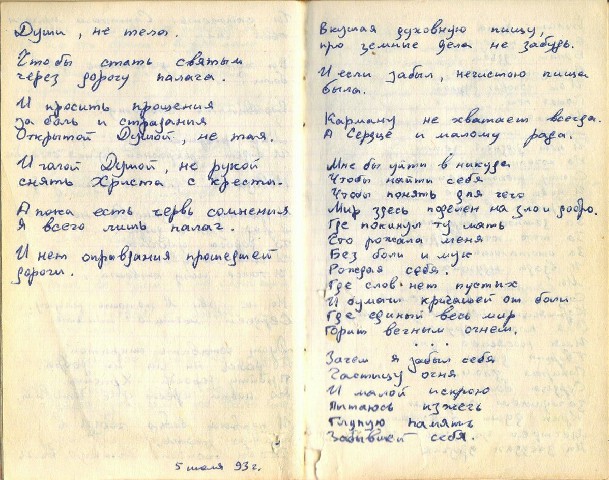 Души, не тела.
Чтобы стать святым
через дорогу палача.
И просить прощения
за боль и страдания
Открытой Душой, не тая.
И голой Душой, не рукой
снять Христа с креста.
А пока есть червь сомнения
Я всего лишь палач.
И нет оправдания прошедшей
дороги.
5 июля 93 г.
Вкушая духовную пищу,
про земные дела не забудь.
И если забыл, нечистою пища
была.
Карману не хватает всегда.
А Сердце и малому рада.
Мне бы уйти в никуда
Чтобы найти себя
Чтобы понять для чего
Мир здесь поделен на зло и добро.
Где покинул ту мать
Что рожала меня
Без боли и мук
Рождая себя.
Где слов нет пустых
И бумаги кричащей от боли
Где единый весь мир
Горит вечным огнем.
. . .
Зачем я забыл себя
Частицу огня
И малой искрою
Пытаюсь изжечь
Глупую память
Забывшей себя.